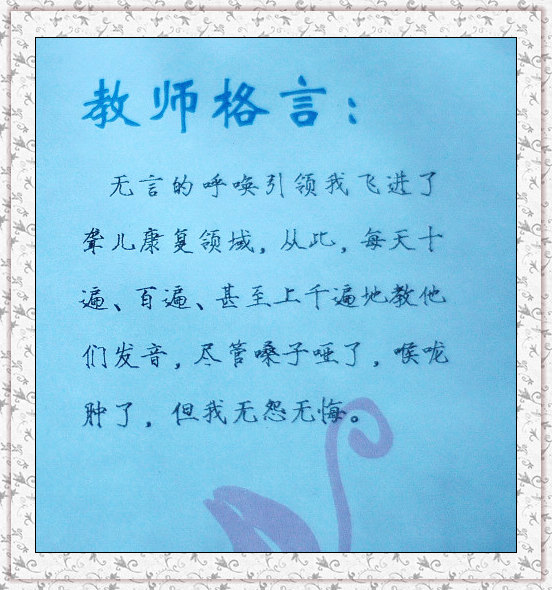 教师格言：
无言的呼唤引领我飞进了
聋儿康复领域，从此，每天十
遍、百遍、甚至上千遍地教他
们发音，尽管嗓子哑了，喉咙
肿了，但我无怨无悔。